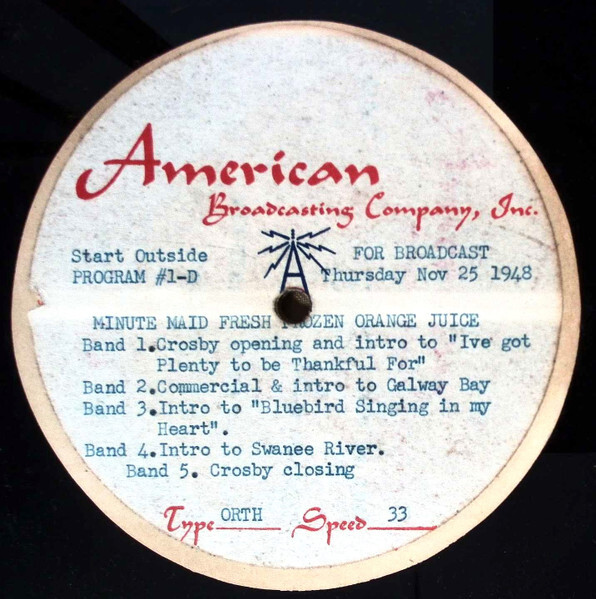 American
Broadcasting Company, Inc.
Start Outside FOR BROADCAST
PROGRAM #1-D Thursday Nov 25 1948
MINUTE MAID FRESH FROZEN ORANGE JUICE
Band 1.Crosby opening and intro to "Ive got
Plenty to be Thankful For"
Band 2.Commercial & intro to Galway Bay
Band 3.Intro to "Bluebird Singing in my
Heart".
Band 4.Intro to Swanee River.
Band 5. Crosby closing
Type ORTH Speed 33